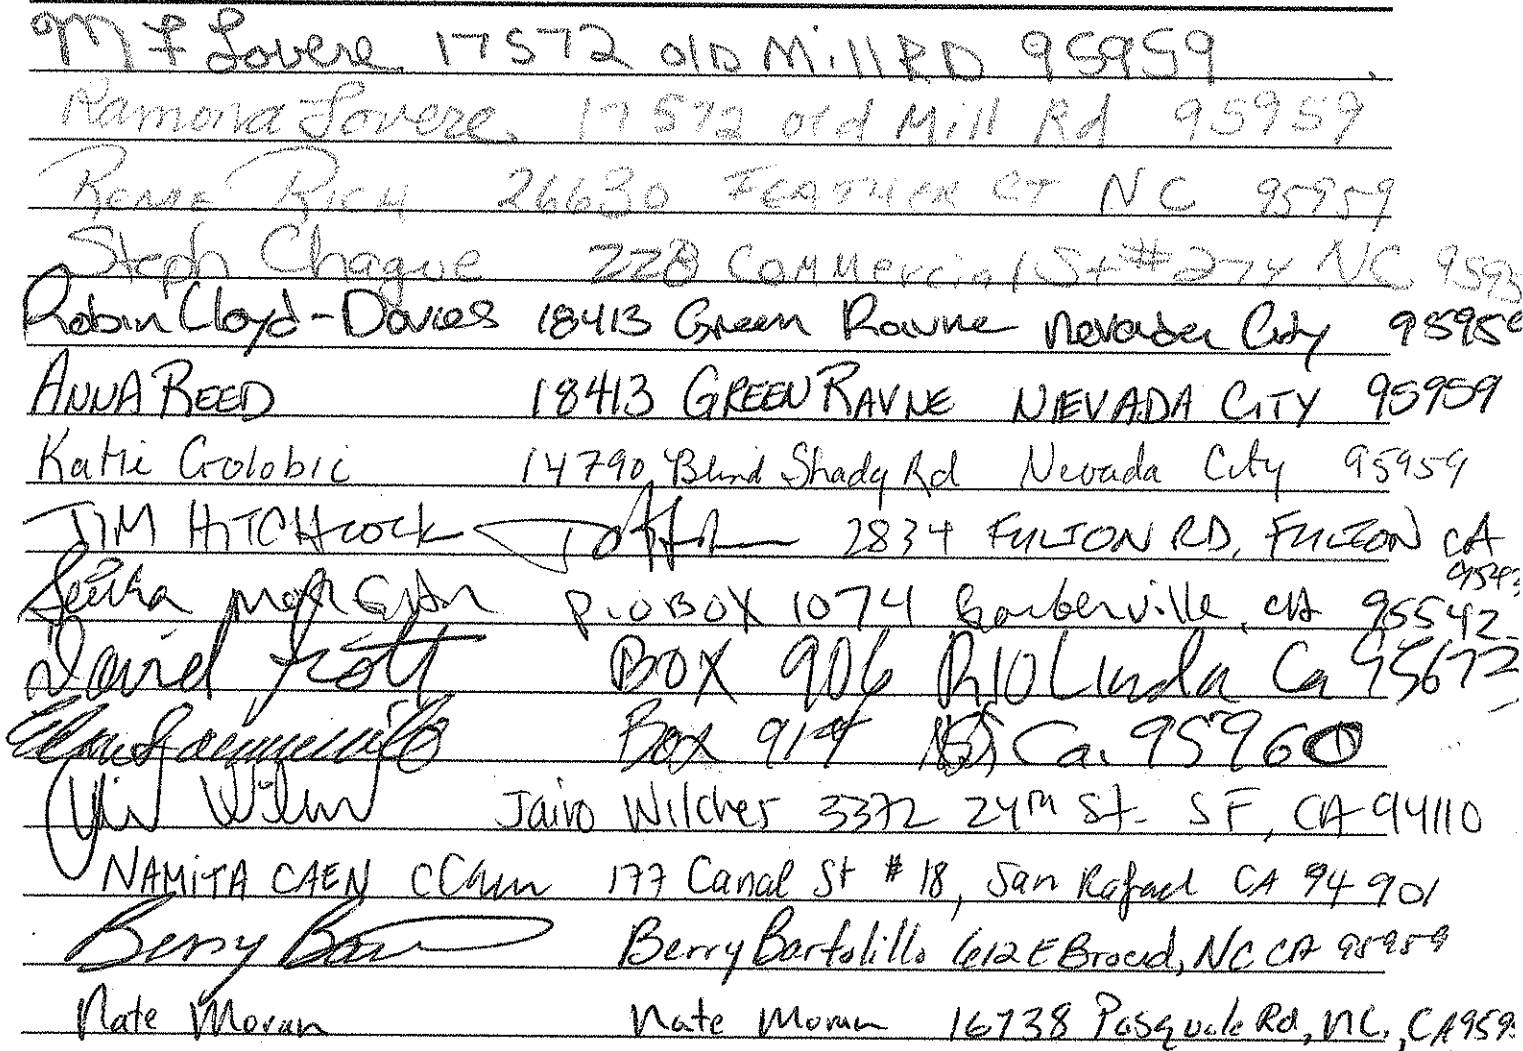 M F Lovere 17572 old Mill RD 95959
Ramona Lovere 17572 old Mill Rd 95959
Rich 26630 FEATHER CT NC 95959
Steph Chague 228 Commercial St #274 NC 9595
Robin Cloyd-Davies 18413 Green Ravne Nevada City 95959
ANNA REED 18413 GREEN RAVNE NEVADA CITY 95959
Katie Golobic 14790 Blind Shady Rd Nevada City 95959
TIM HITCHCOCK 2834 FULTON RD, FULTON CA
9543
MORGAN P.O BOX 1074 Garberville, CA 95542
David Box 906 RIO Linda Ca 95672
Box 914 Ca. 95960
Jairo Wilches 3372 24th St. SF, CA 94110
NAMITA CAEN 177 Canal St #18, San Rafael CA 94901
Berry Berry Bartolillo 612 E Broad, NC CA 95959
Nate Moran Nate Moran 16738 Pasquale Rd, NC, CA 9595